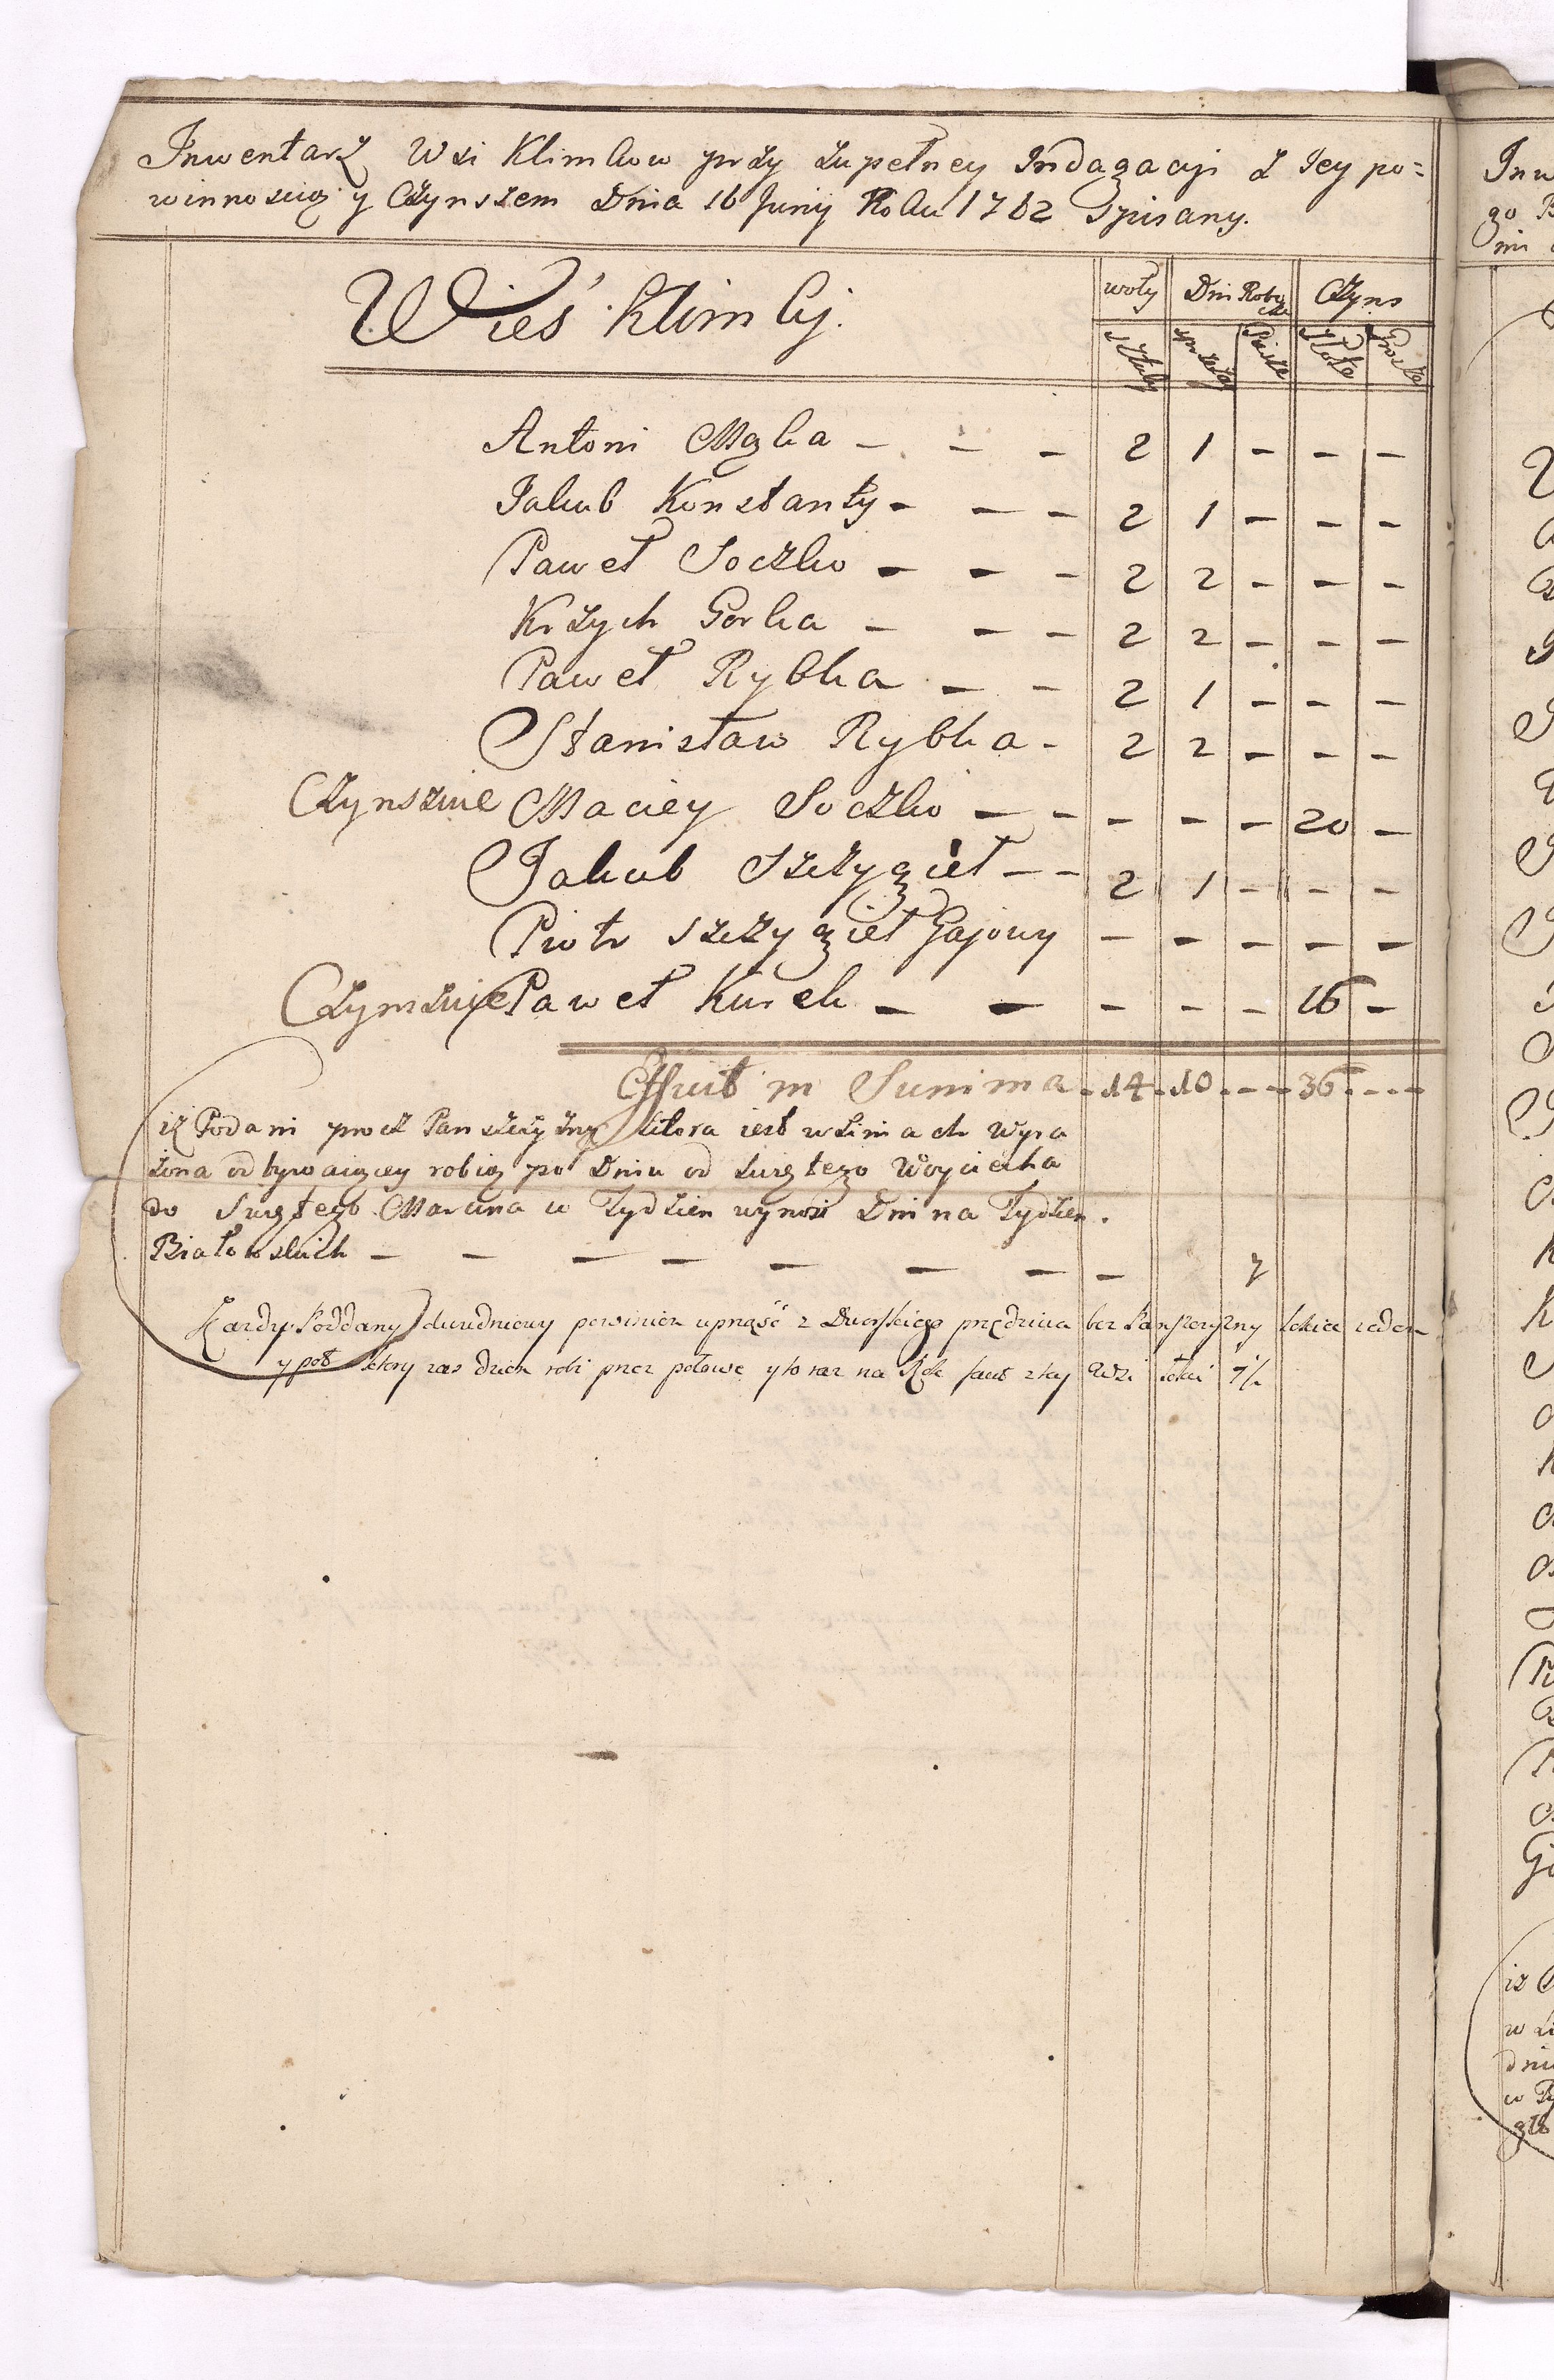 Inwentarz Wsi Klimkow przy zupełney Indagacyi z Jey po=
winnoscią y Czynszem Dnia 16 Junij Roku 1782 Spisany.
Wieś Klimki.
woły Dni Robocze Czyns
sztuki sprzeżay Piesze złote Grosze
Antoni Mąka - - - 2 1 - - -
Jakub Konstanty - - - 2 1 - - -
Paweł Soczko - - - 2 2 - - -
Krzych Gorka - - - 2 2 - - -
Paweł Rybka - - 2 1 - - -
Stanisław Rybka - 2 2 - - -
Czynszuie Maciey Soczko - - - - - 20 -
Jakub Szczygieł - - 2 1 - - -
Piotr Szczygieł Gajowy - - - - -
Czynszuie Paweł Kurek - - - - - 16 -
Effluit in Summa - 14 - 10 - - - 36 - - -
iż Podani procz Panszczyzny ktora iest w Liniach Wyra
żona odbywaiącey robią poł Dniu od Swiętego Woyciecha
do Swiętego Marcina w Tydzien wynosi Dni na Tydzien.
Białowskich - - - - - - - - 7
Kazdy Poddany dwudniowy powinien uprząść z Dworskiego przędziwa bez Panszczyzny łokieć ieden
y poł ktory zas dzien robi przez połowe y to raz na Rok z tey Wsi łokci 7½
Inw
go